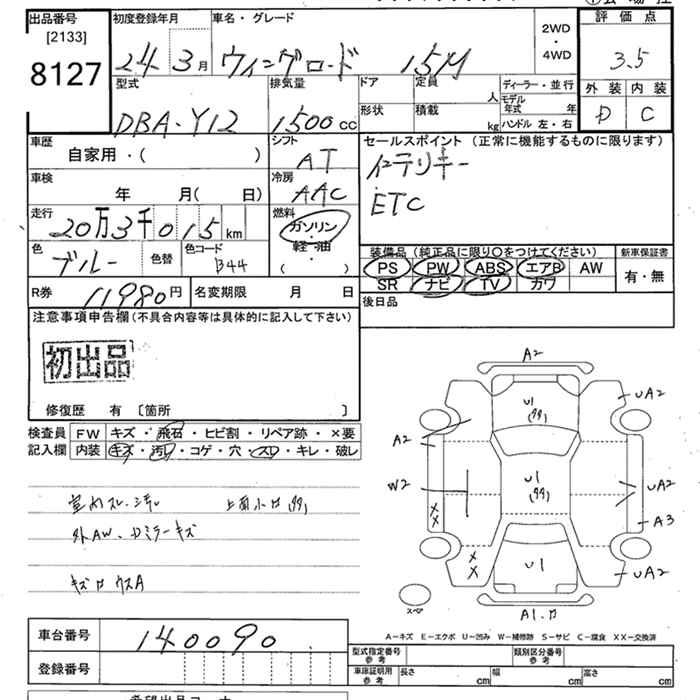 出品番号 初度登録年月 車名・グレード 2WD ・ 4WD 評価点
[2133]
8127 24年 3月 ウィングロード 15M 3.5
型式 排気量 ドア 定員 人 ディーラー・並行 外装 内装
DBA-Y12 1500cc 形状 積載 kg モデル年式 年 ハンドル 左・右 D C
車歴 自家用・( ) シフト AT セールスポイント (正常に機能するものに限ります)
インテリキー
車検 年 月( 日) 冷房 AAC
ETC
走行 20万3千015km 燃料 ガソリン・軽油・( )
色 ブルー 色替 色コード B44
装備品 (純正品に限り〇をつけてください) 新車保証書
PS PW ABS エアB AW 有・無
SR ナビ TV カワ
R券 11980円 名変期限 月 日 後日品
注意事項申告欄(不具合内容等は具体的に記入して下さい)
初出品
修復歴 有 〔箇所 〕
検査員 FW キズ・飛石・ヒビ割・リペア跡・×要
記入欄 内装 キズ・汚レ・コゲ・穴・スレ・キレ・破レ
室内スレ、汚レ
外AW、Dミラーキズ
A2
U1
UA2
A2
W2
U1
UA2
A3
XX
XX
U1
UA2
スペア
A1.
A-キズ E-エクボ U-凹み W-補修跡 S-サビ C-腐食 XX-交換済
車台番号 140090
登録番号
型式指定番号 参考 類別区分番号 参考
車庫証明用 参考 長さ cm 幅 cm 高さ cm